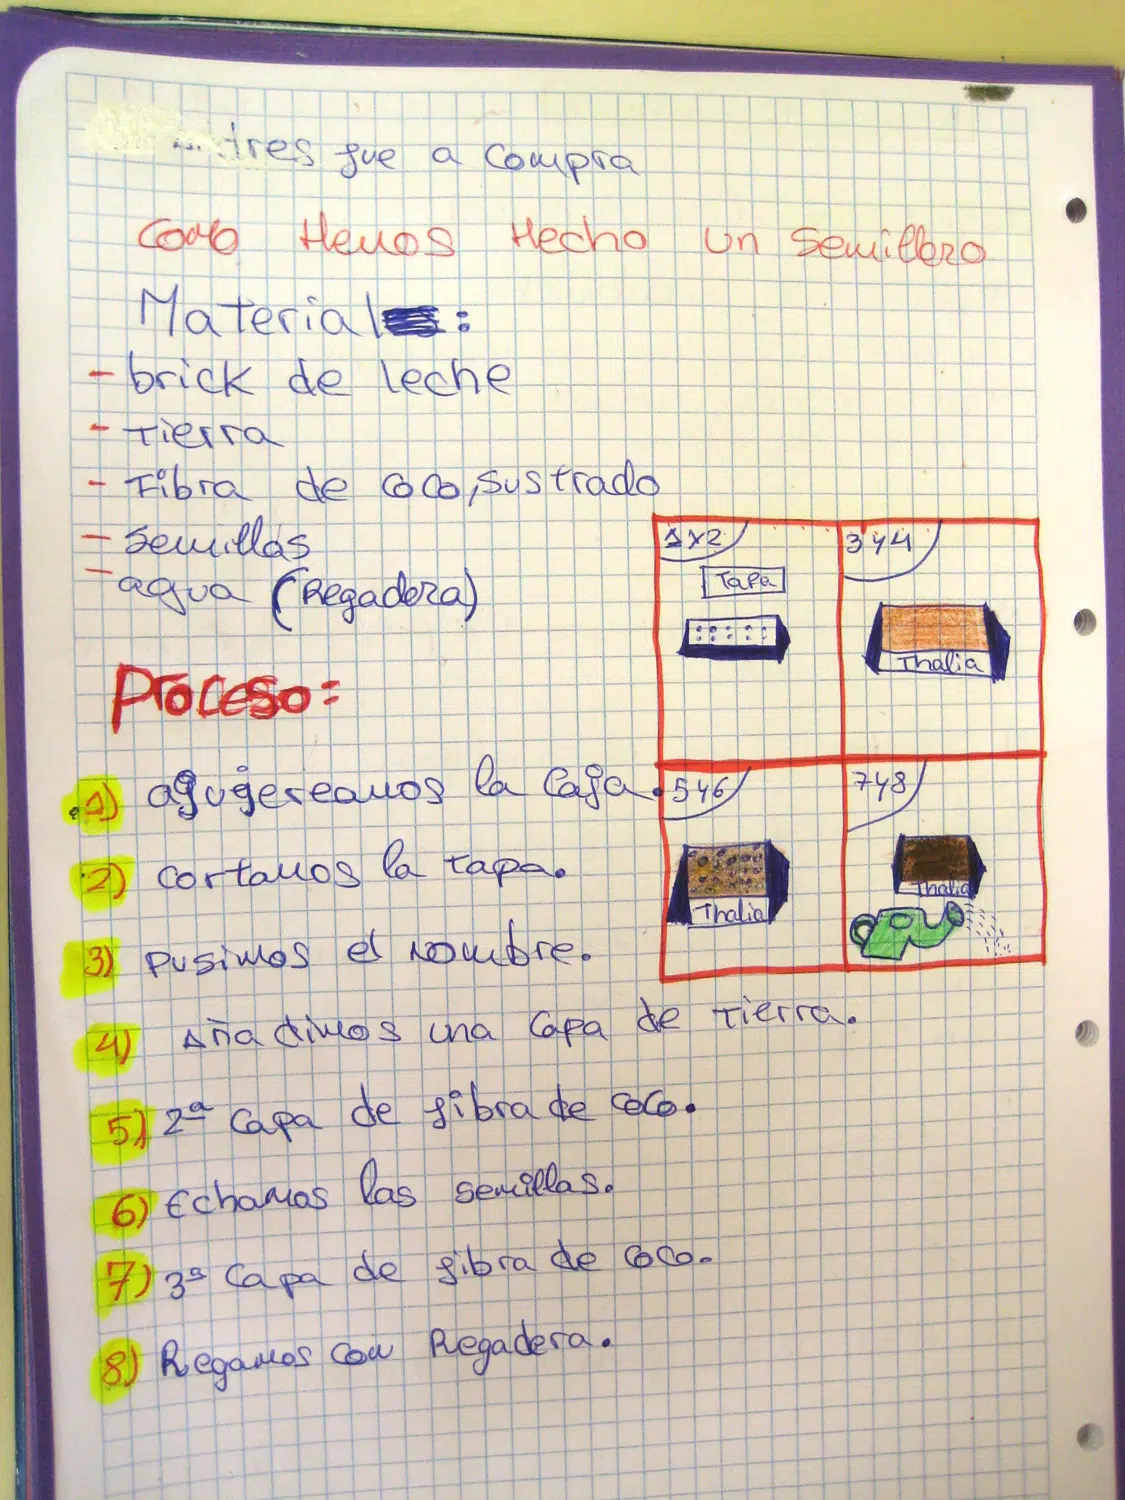 fue a compra
Como Hemos Hecho un Semillero
Material:
- brick de leche
- Tierra
- Fibra de coco, sustrado
- Semillas
- agua (Regadera)
Proceso:
1) agugereamos la Caja.
2) cortamos la tapa.
3) pusimos el nombre.
4) Añadimos una Capa de Tierra.
5) 2ª Capa de fibra de coco.
6) Echamos las semillas.
7) 3ª Capa de fibra de coco.
8) Regamos con Regadera.
1 y 2
Tapa
3 y 4
Thalia
5 y 6
Thalia
7 y 8
Thalia